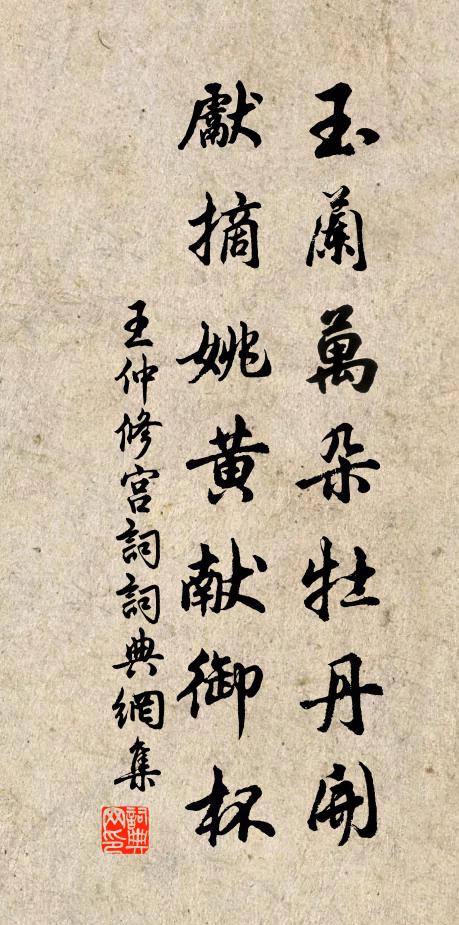 玉蘭萬朵牡丹開
獻摘姚黄献御杯
王仲修宫詞詞典網集
詞典
网印